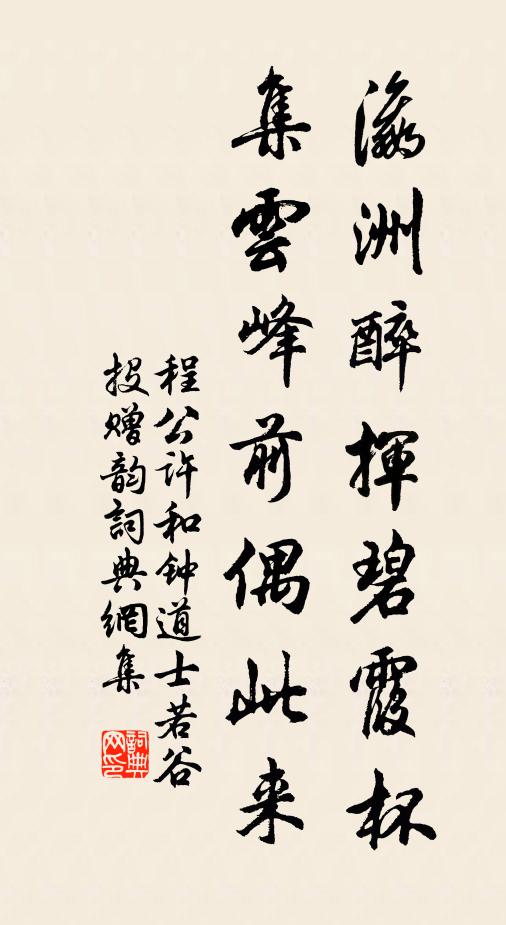 瀛洲醉揮碧霞杯
集雲峰前偶此来
程公许和钟道士若谷
投赠韵詞典網集
詞典网印